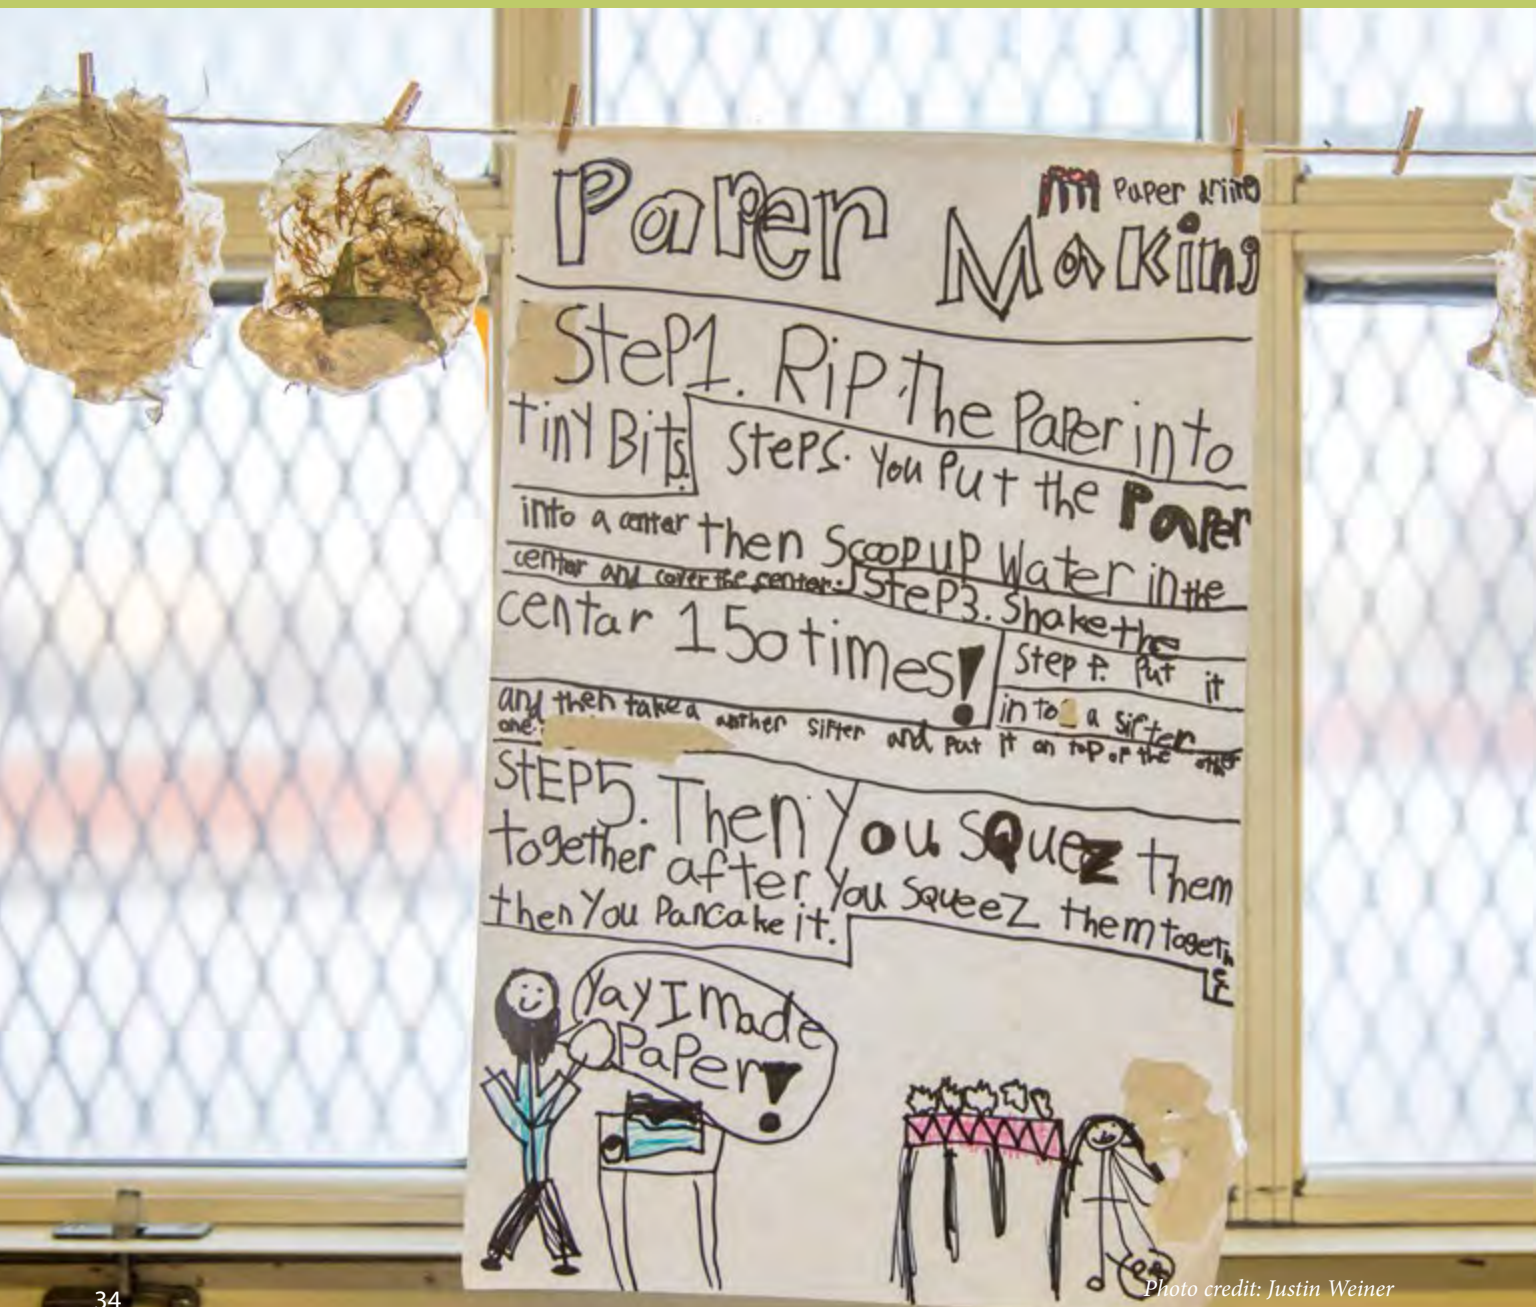 Paper
Paper
Making
Step1. Rip The Paper into
tiny Bits.
StepS. You Put the Paper
into a centar then Scoop up Water in the
centar and cover the centar.
SteP3. Shake the
centar 150 times!
Step 4. Put it
in to a Sifter
and then take a anther sifter and put it on top of the other
one.
StEP5. Then You SQuez them
together after you squeez them togeth
er
then You Pancake it.
Yay I made
Paper!
34
Photo credit: Justin Weiner